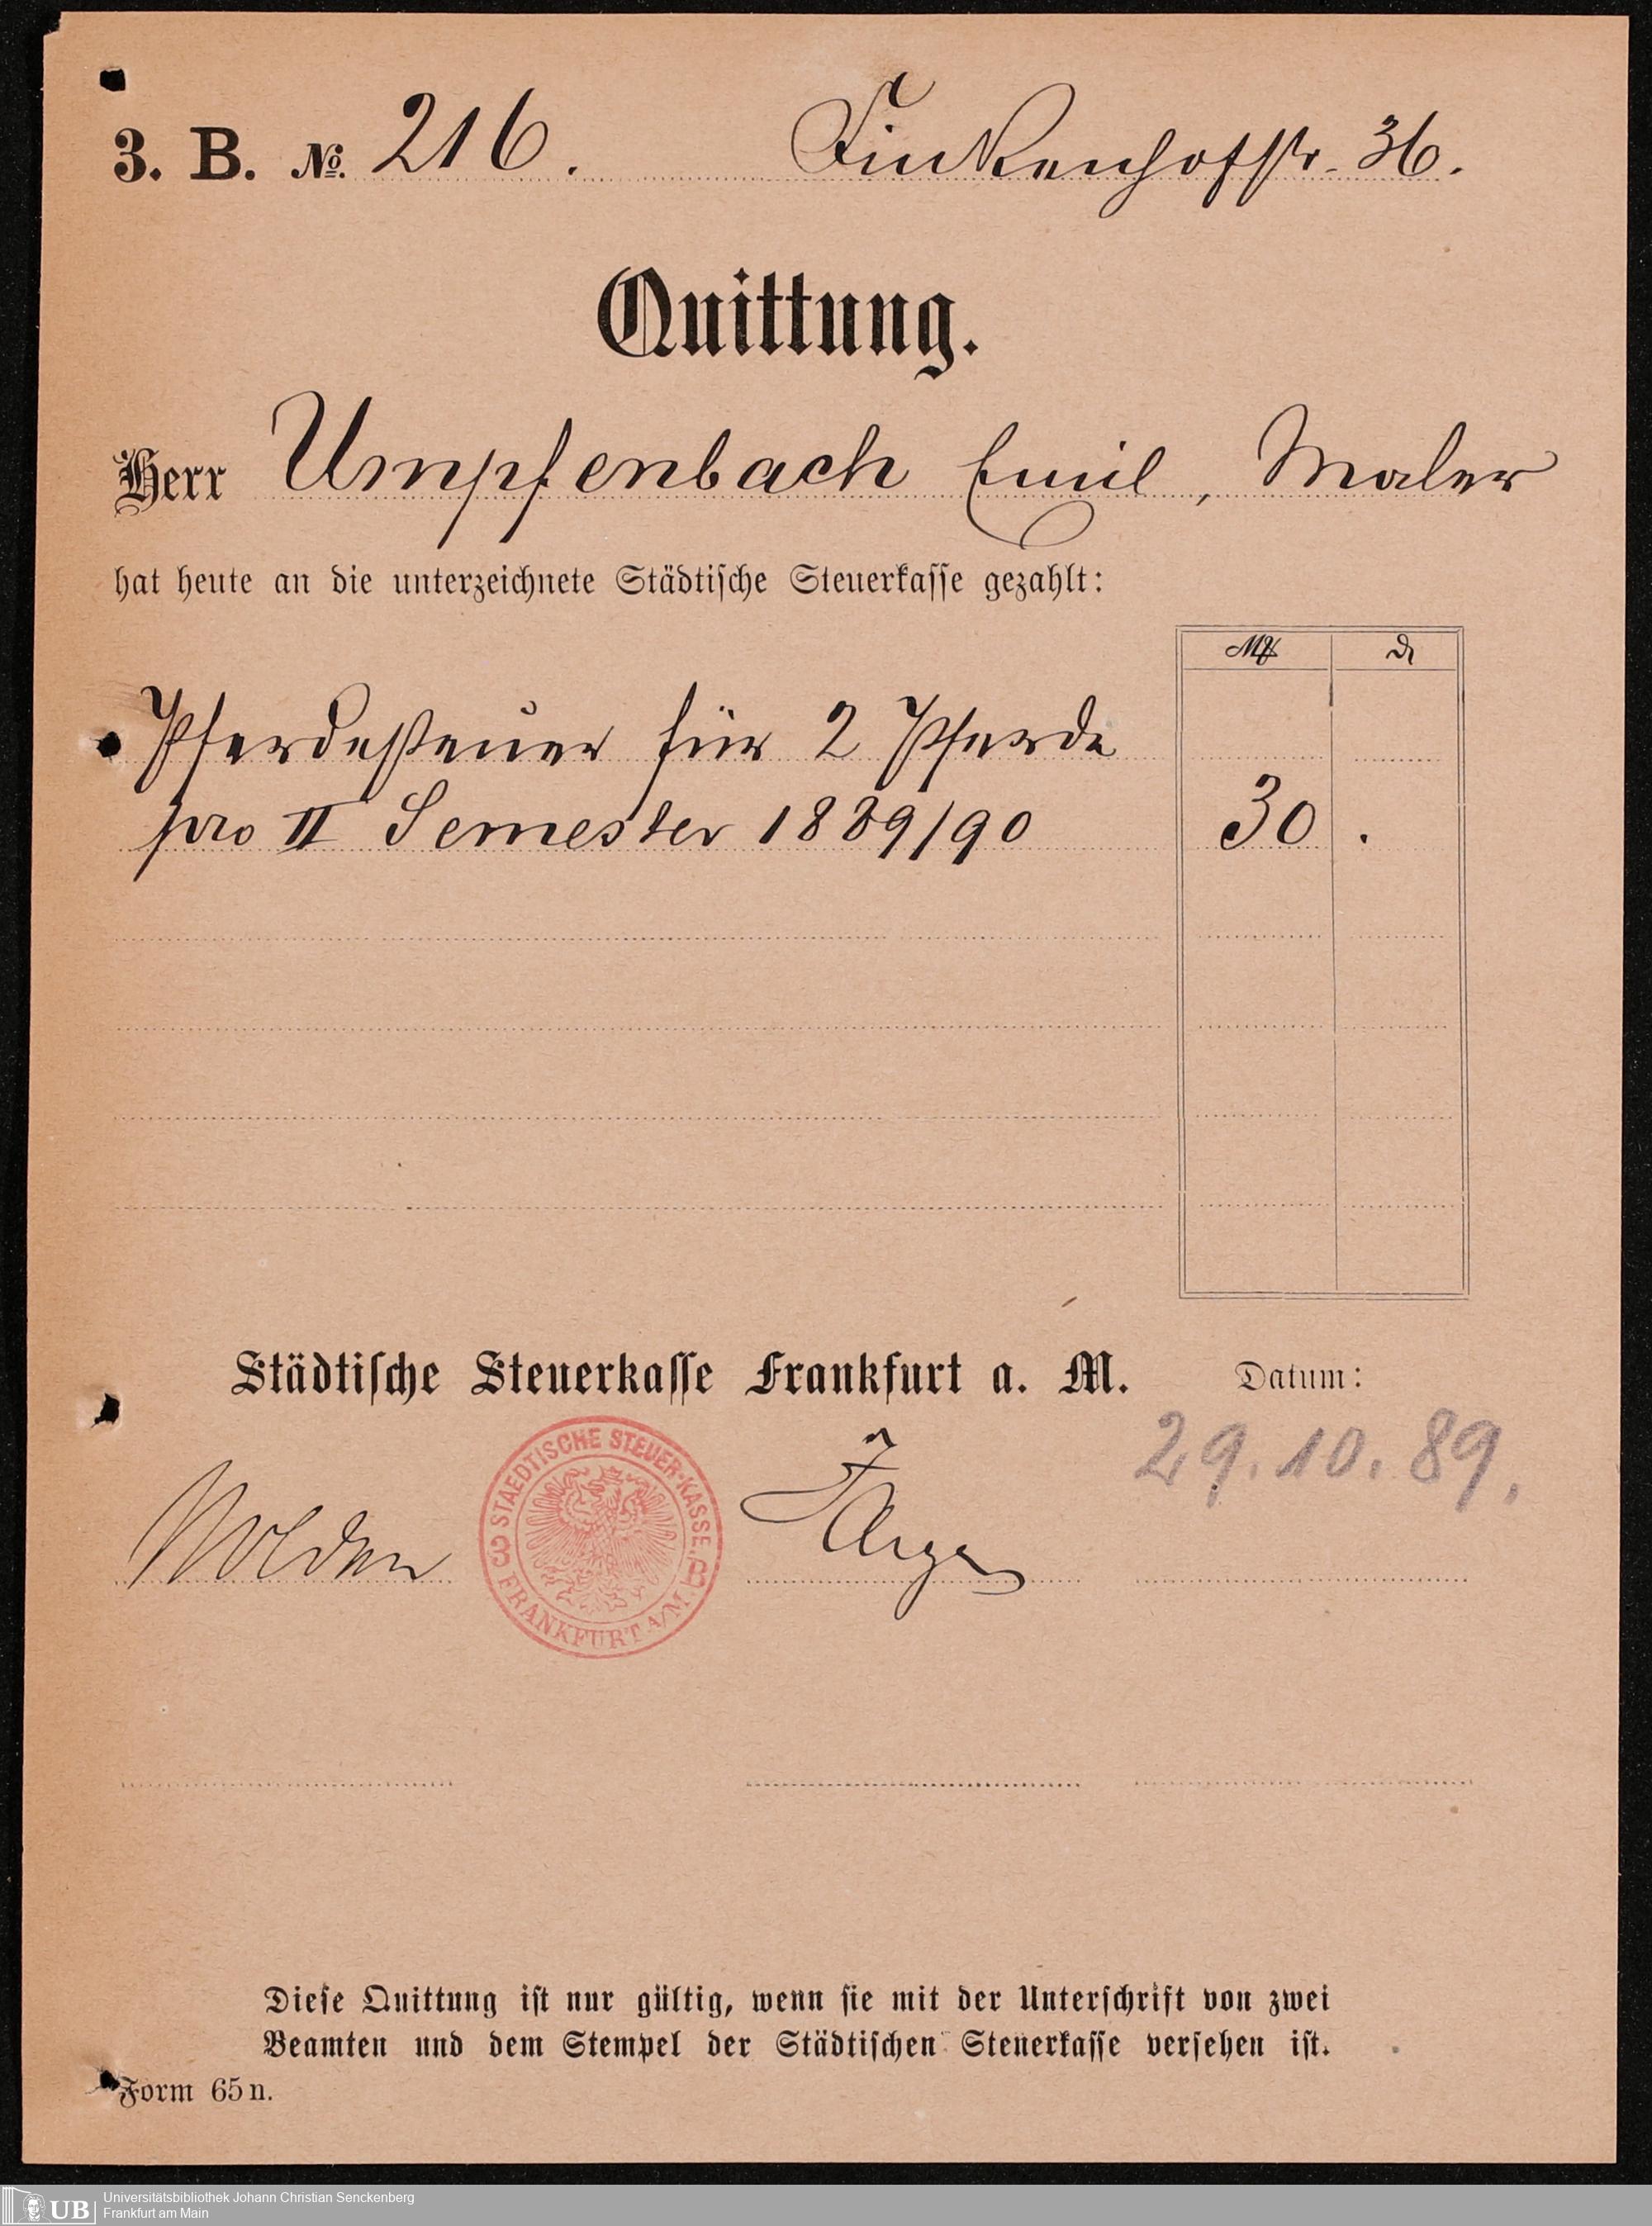 3. B. №. 216. Finkenhofstr. 36.
Quittung.
Herr Umpfenbach Emil, Maler
hat heute an die unterzeichnete Städtische Steuerkasse gezahlt:
Pferdesteuer für 2 Pferde
pro II Semester 1889/90 30 .
Städtische Steuerkasse Frankfurt a. M. Datum:
29.10.89.
STAEDTISCHE STEUER-KASSE
3 B
FRANKFURT A/M
Diese Quittung ist nur gültig, wenn sie mit der Unterschrift von zwei
Beamten und dem Stempel der Städtischen Steuerkasse versehen ist.
Form 65n.
UB Universitätsbibliothek Johann Christian Senckenberg
Frankfurt am Main